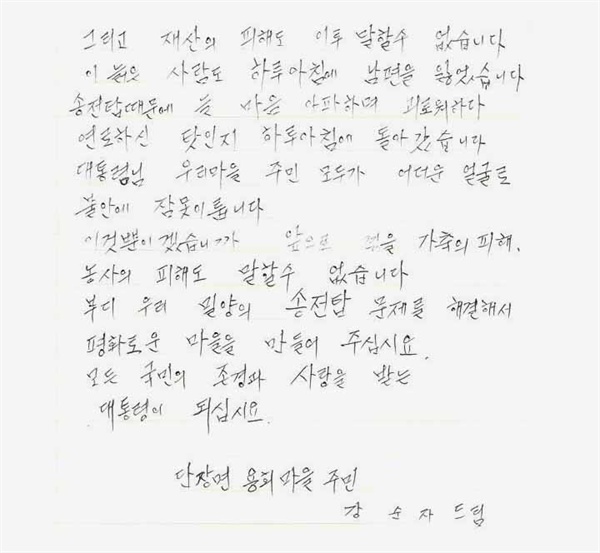 그리고 재산의 피해도 이루 말할수 없습니다
이 늙은 사람도 하루아침에 남편을 잃었습니다
송전탑때문에 늘 마음 아파하며 괴로워하다
연로하신 탓인지 하루아침에 돌아갔습니다
대통령님 우리마을 주민 모두가 어더운 얼굴로
불안에 잠못이룹니다
이것뿐이겠습니가 앞으로 가축의 피해.
농사의 피해도 말할수 없습니다
부디 우리 밀양의 송전탑 문제를 해결해서
평화로운 마을을 만들어 주십시요.
모든 국민의 존경과 사랑을 받는
대통령이 되십시요.
단장면 용회마을 주민
강순자 드림